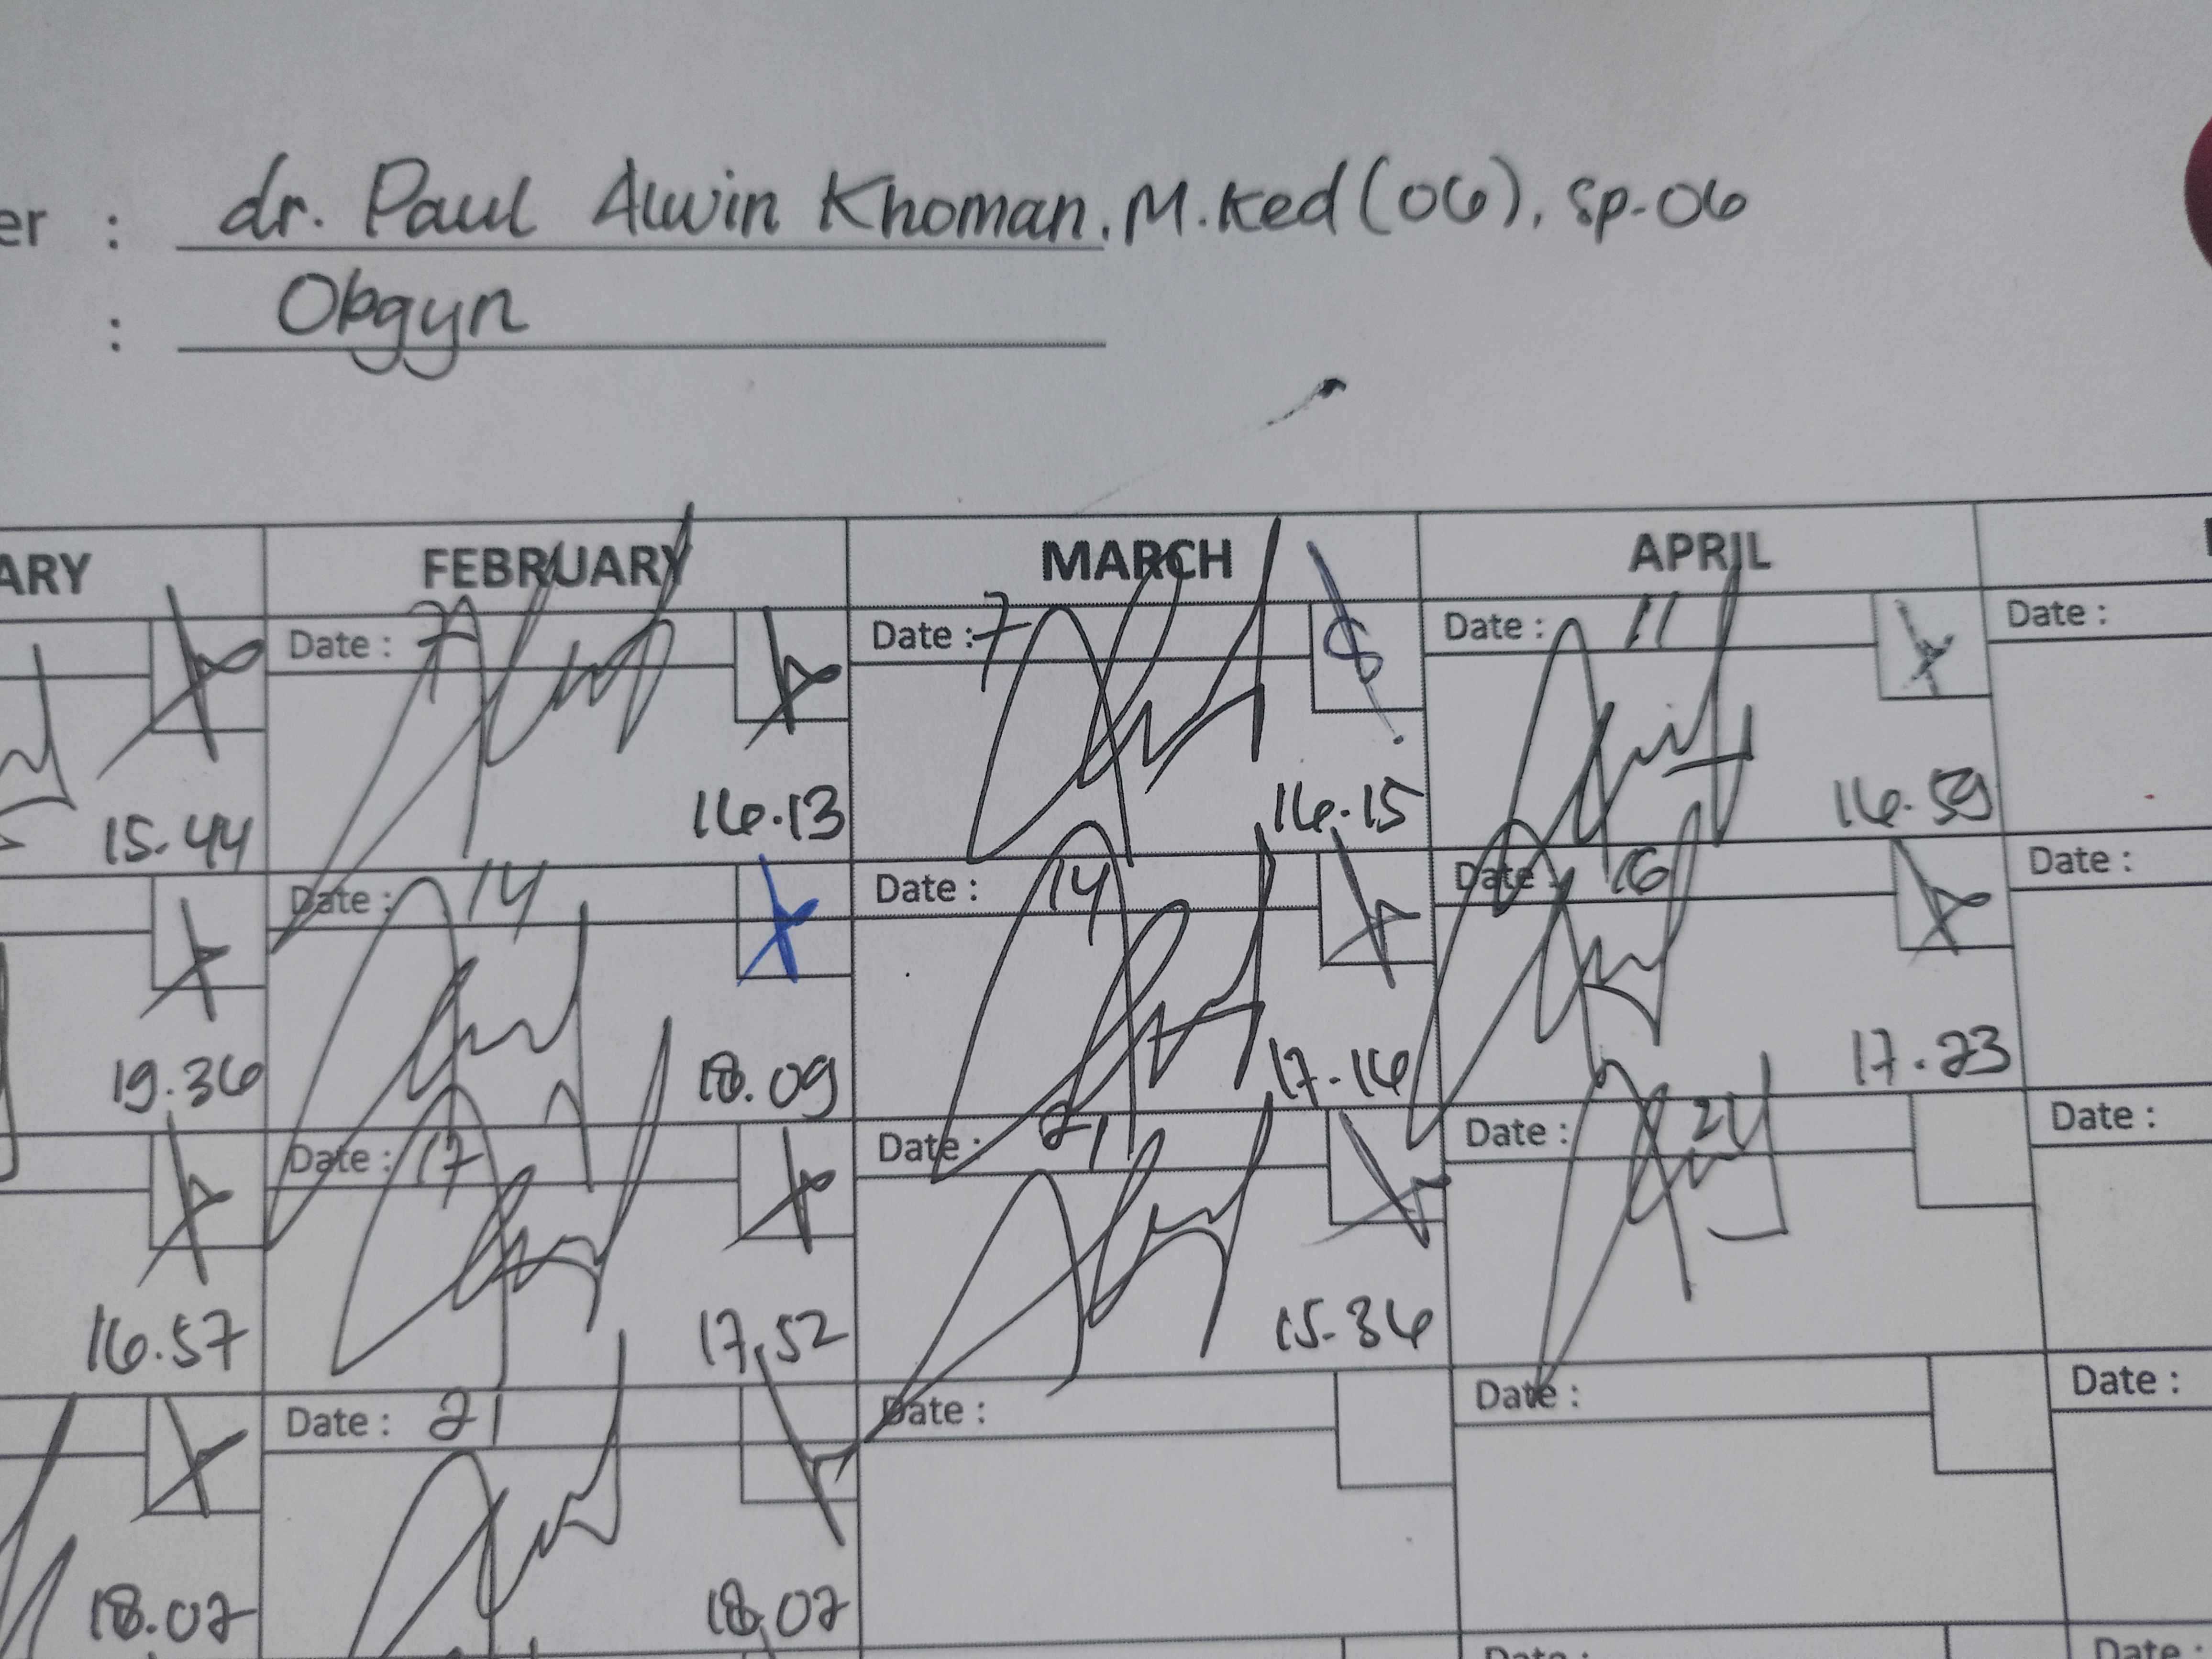 er : dr. Paul Alwin Khoman. M.Ked (OG), Sp.OG
: Obgyn
ARY FEBRUARY MARCH APRIL
Date : 7 Date : 7 Date : 11 Date :
15.44 16.13 16.15 16.59
Date : 14 Date : 14 Date : 16 Date :
19.36 18.09 17.16 17.23
Date : 17 Date : 21 Date : 24 Date :
16.57 17.52 15.36
Date : 21 Date : Date : Date :
18.07 18.07
Date : Date :